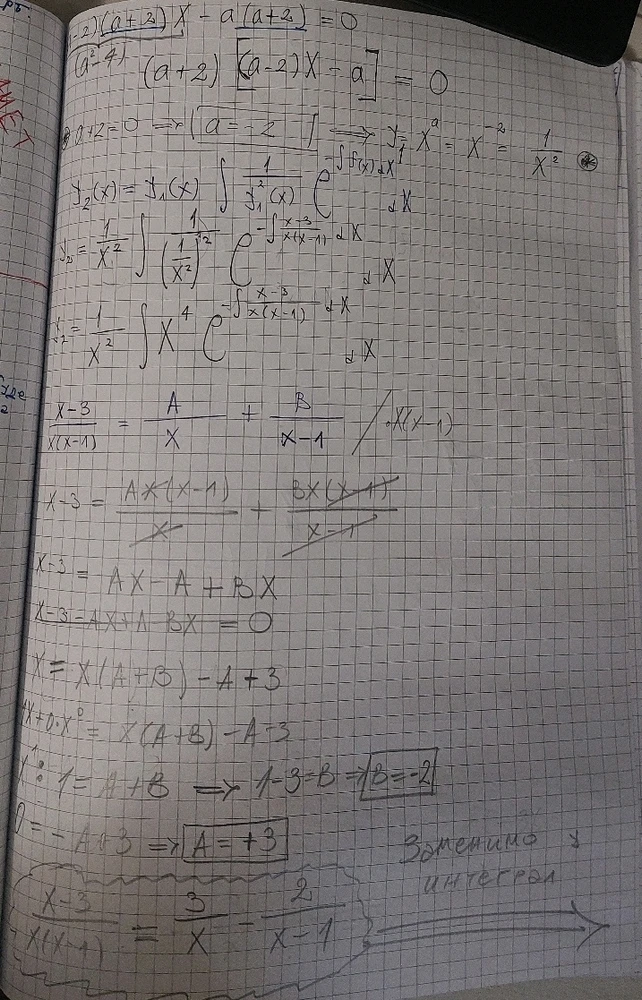 -2)(a+2)X - a(a+2) = 0
(a²-4)
(a+2) [(a-2)X - a] = 0
a+2=0 => a=-2 => y₁ = Xᵃ = X⁻² = 1/X² *
y₂(x) = y₁(x) ∫ 1/y₁²(x) e^(-∫f(x)dx) dX
y₂ = 1/X² ∫ 1/(1/X²)² e^(-∫(x-3)/(x(x-1)) dX) dX
y₂ = 1/X² ∫ X⁴ e^(-∫(x-3)/(x(x-1)) dX) dX
(X-3)/(X(X-1)) = A/X + B/(X-1) / ·X(X-1)
X-3 = AX(X-1)/X + BX(X-1)/(X-1)
X-3 = AX - A + BX
X-3-AX+A-BX = 0
X = X(A+B) - A + 3
1X+0·X⁰ = X(A+B) - A - 3
X¹: 1 = A+B => 1-3=B => B=-2
0 = -A+3 => A=+3
Заменимо у
интеграл
(X-3)/(X(X-1)) = 3/X - 2/(X-1)